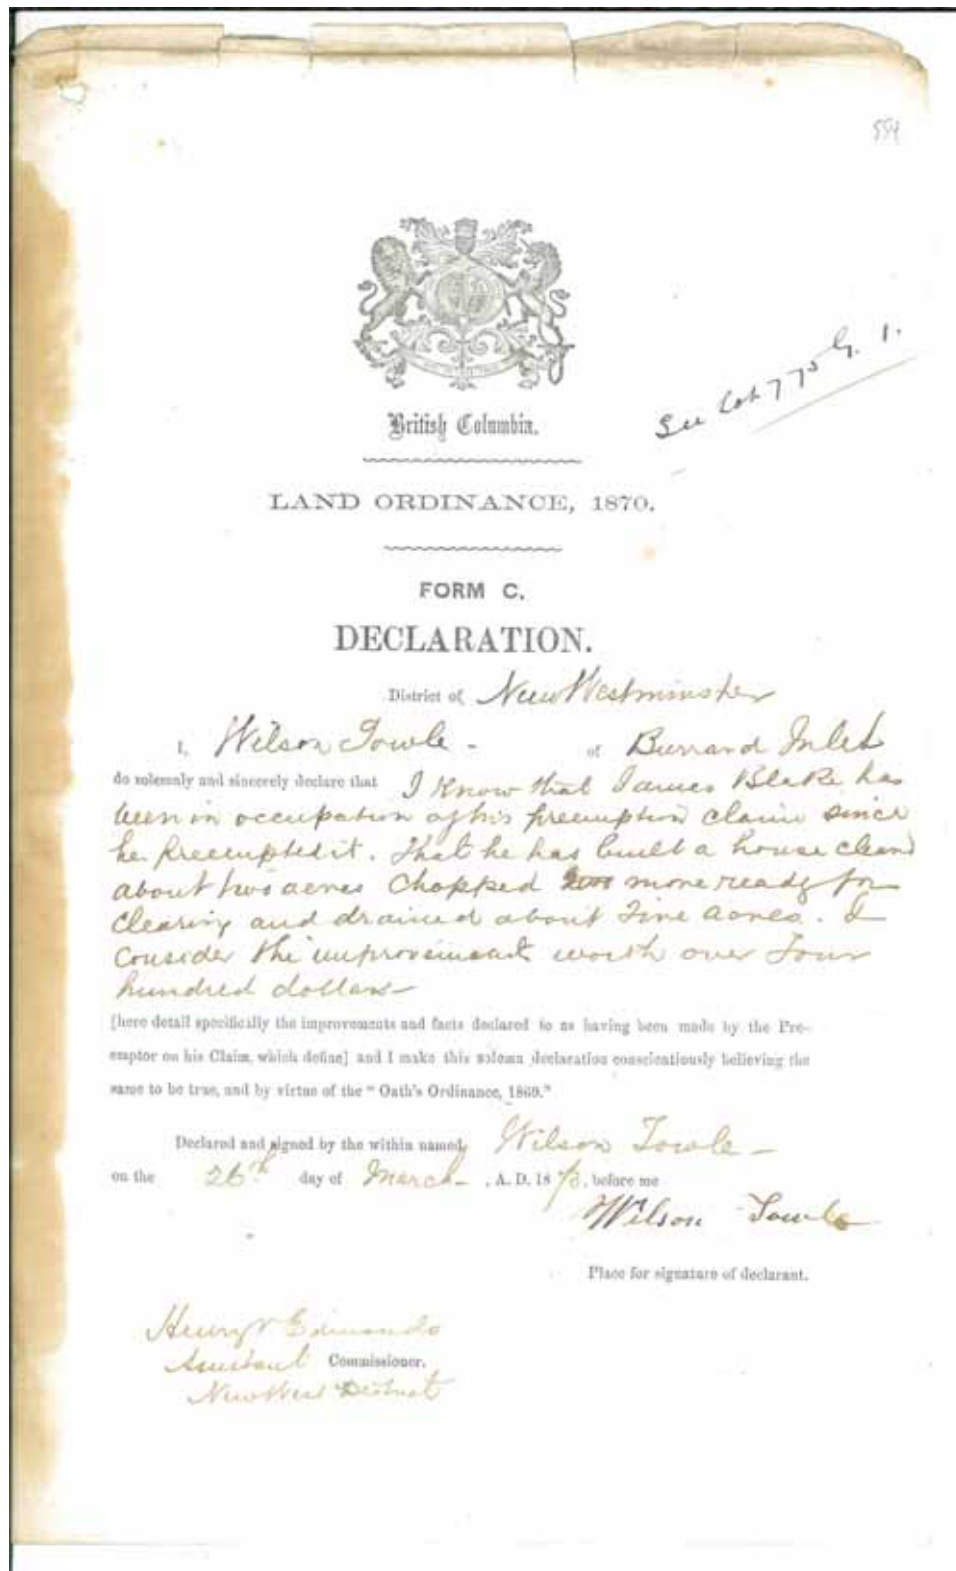 554
British Columbia.
See Lot 775 G. 1.
LAND ORDINANCE, 1870.
FORM C.
DECLARATION.
District of New Westminster
I, Wilson Towle - of Burrard Inlet
do solemnly and sincerely declare that I Know that James Blake has
been in occupation of his preemption claim since
he Preempted it. That he has built a house cleard
about two acres Chopped more ready for
Clearing and drained about Five acres. I
Consider the improvements worth over Four
hundred dollars-
[here detail specifically the improvements and facts declared to as having been made by the Pre-
emptor on his Claim, which define] and I make this solemn declaration conscientiously believing the
same to be true, and by virtue of the "Oath's Ordinance, 1869."
Declared and signed by the within named Wilson Towle -
on the 26th day of March , A. D. 1873, before me
Wilson Towle
Place for signature of declarant.
Henry V Edmonds
Assistant Commissioner.
New West District